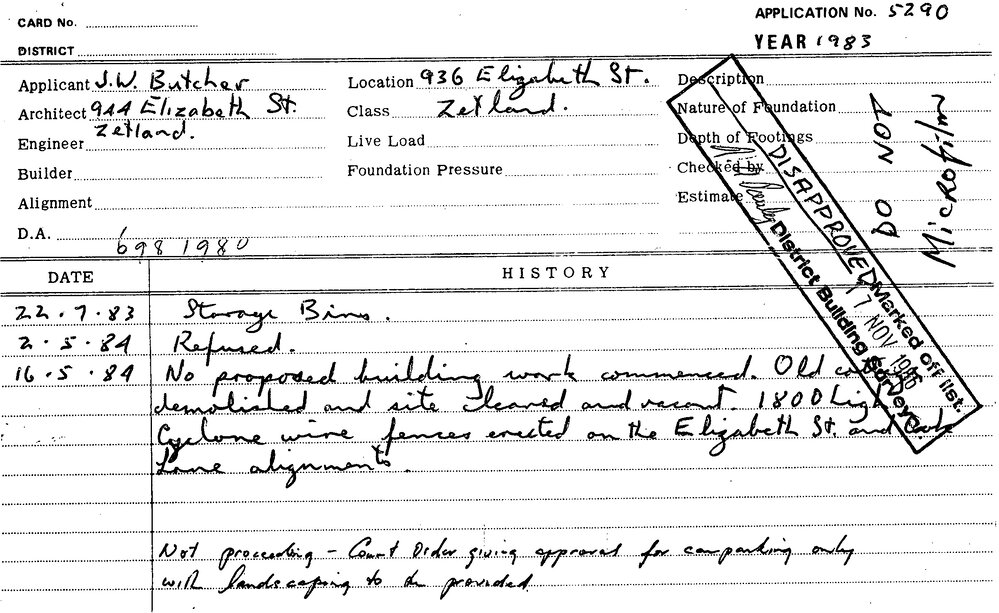 CARD No.
APPLICATION No. 5290
DISTRICT
YEAR 1983
Applicant J.W. Butcher
Location 936 Elizabeth St.
Description
Architect 944 Elizabeth St.
Class Zetland.
Nature of Foundation
Zetland.
Engineer
Live Load
Depth of Footings
Builder
Foundation Pressure
Checked by
Alignment
Estimate
D.A. 698 1980
DO NOT
Microfilm
DISAPPROVED
Marked off list.
17 NOV 1986
District Building Surveyor.
DATE
HISTORY
22.7.83 Storage Bins.
2.5.84 Refused.
16.5.84 No proposed building work commenced. Old
demolished and site cleared and vacant. 1800 high
Cyclone wire fences erected on the Elizabeth St. and
Lane alignments.
Not proceeding - Court Order giving approval for carparking only
with landscaping to be provided